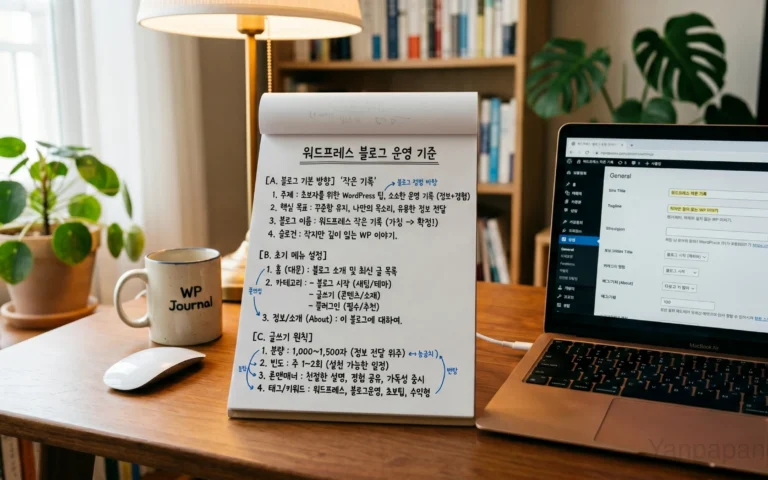 워드프레스 블로그 운영 기준
[A. 블로그 기본 방향] '작은 기록'
블로그 정렬 바랑
1. 주제 : 초보자를 위한 WordPress 팁, 소소한 운영 기록 (정보+경험)
2. 핵심 목표 : 꾸준함 유지, 나만의 목소리, 유용한 정보 전달
3. 블로그 이름 : 워드프레스 작은 기록 (가칭 → 확정!)
4. 슬로건 : 작지만 깊이 있는 WP 이야기.
[B. 초기 메뉴 설정]
1. 홈 (대문) : 블로그 소개 및 최신 글 목록
2. 카테고리 : - 블로그 시작 (세팅/테마)
- 글쓰기 (콘텐츠/소재)
- 플러그인 (필수/추천)
3. 정보/소개 (About) : 이 블로그에 대하여.
[C. 글쓰기 원칙]
1. 분량 : 1,000~1,500자 (정보 전달 위주)
2. 빈도 : 주 1~2회 (실천 가능한 일정)
3. 톤앤매너 : 친절한 설명, 경험 공유, 가독성 중시
4. 태그/키워드 : 워드프레스, 블로그운영, 초보팁, 수익형
WP
Journal
General
Site Title
워드프레스 작은 기록
Tagline
작지만 깊이 있는 WP 이야기
General
MacBook Air
Yanpapan